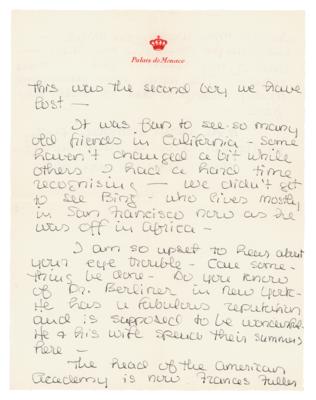 Palais de Monaco
this was the second boy we have
lost —
It was fun to see so many
old friends in California - some
haven't changed a bit while
others I had a hard time
recognising — we didn't get
to see Bing - who lives mostly
in San Francisco now as he
was off in Africa -
I am so upset to hear about
your eye trouble - Can some-
thing be done - Do you know
of Dr. Berliner in New York -
He has a fabulous reputation
and is supposed to be wonderful -
He & his wife spend their summers
here —
The head of the American
Academy is now Frances Fuller